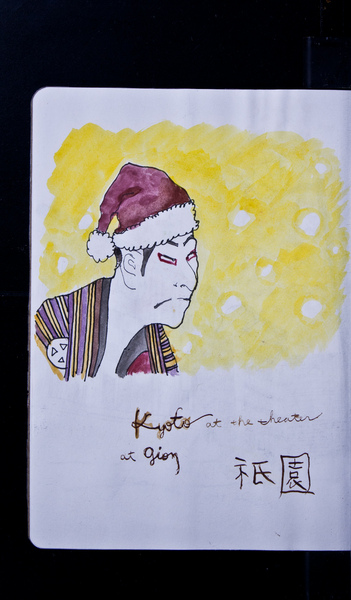 Kyoto at the theater
at Gion
祇園